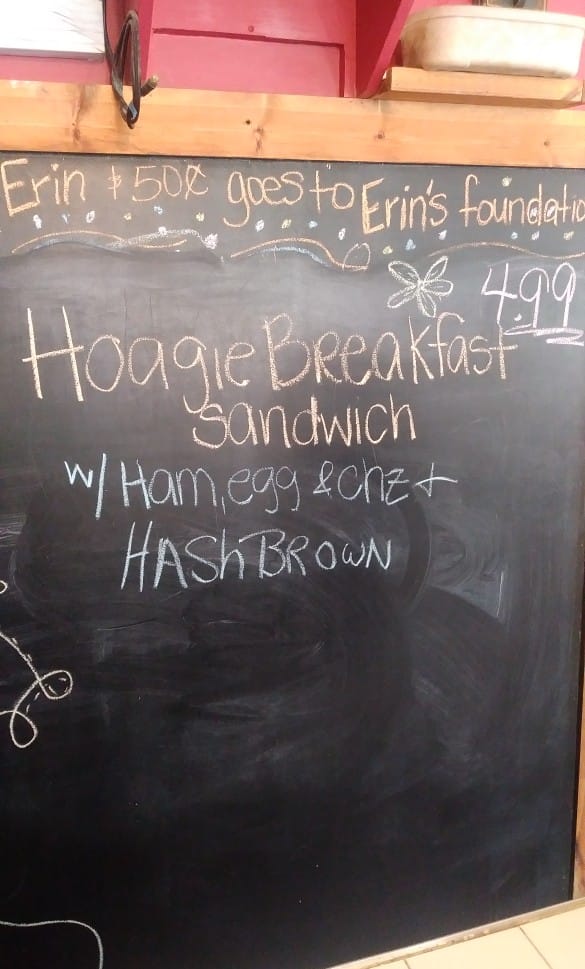 Erin $50¢ goes to Erin's foundatio
4.99
Hoagie Breakfast
sandwich
w/ Ham, egg & chz +
HAShBROWN